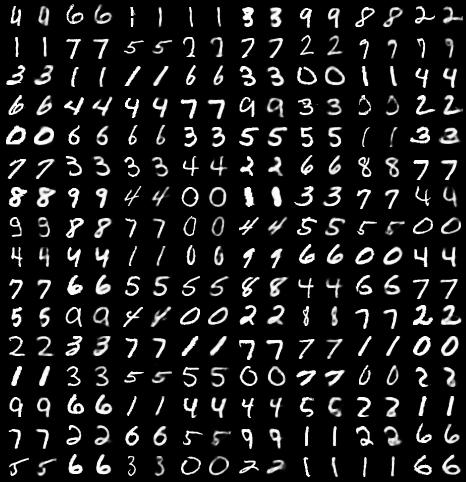 4 4 6 6 1 1 1 1 3 3 9 9 8 8 2 2
1 1 7 7 5 5 7 7 7 7 2 2 9 9 9 9
3 3 1 1 1 1 6 6 3 3 0 0 1 1 4 4
6 6 4 4 4 4 7 7 9 9 3 3 0 0 2 2
0 0 6 6 6 6 3 3 5 5 5 5 1 1 3 3
7 7 3 3 3 3 4 4 2 2 6 6 8 8 7 7
8 8 9 9 4 4 0 0 1 1 3 3 7 7 4 4
9 9 8 8 7 7 0 0 4 4 5 5 5 5 0 0
4 4 4 4 1 1 0 0 9 9 6 6 0 0 4 4
7 7 6 6 5 5 5 5 8 8 4 4 6 6 7 7
5 5 9 9 4 4 0 0 2 2 8 8 7 7 2 2
2 2 3 3 7 7 1 1 7 7 7 7 1 1 0 0
1 1 3 3 5 5 5 5 0 0 7 7 0 0 2 2
9 9 6 6 1 1 4 4 4 4 5 5 2 2 1 1
7 7 2 2 6 6 5 5 9 9 1 1 2 2 6 6
5 5 6 6 3 3 0 0 2 2 1 1 1 1 6 6